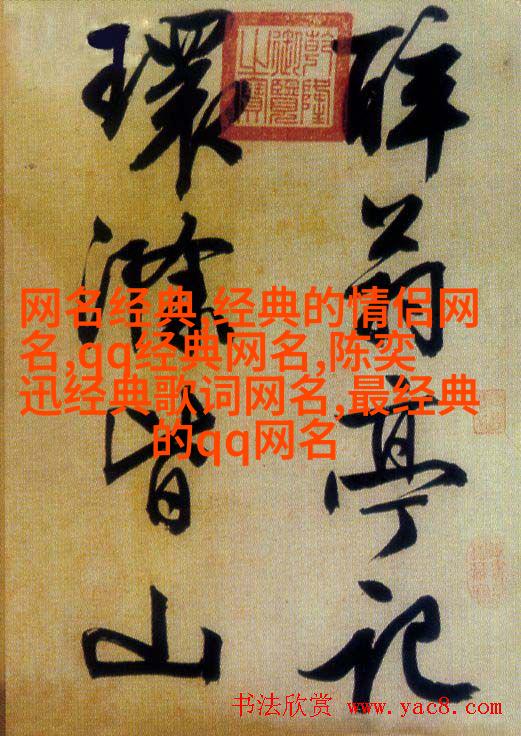 醉翁亭記
環滁皆山
乾隆
御覽
之寶
网名经典,经典的情侣网
名,qq经典网名,陈奕
迅经典歌词网名,最经典
的qq网名
书法欣赏 www.yac8.com